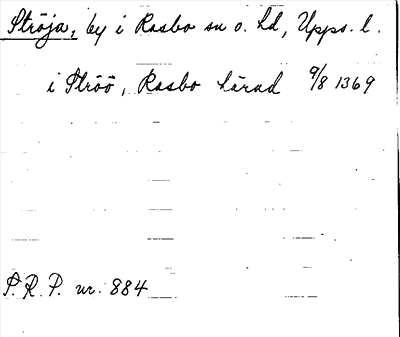 Ströja, by i Rasbo sn o. hd, Upps. l.
i Ströö, Rasbo härad 9/8 1369
S. R. P. nr. 884